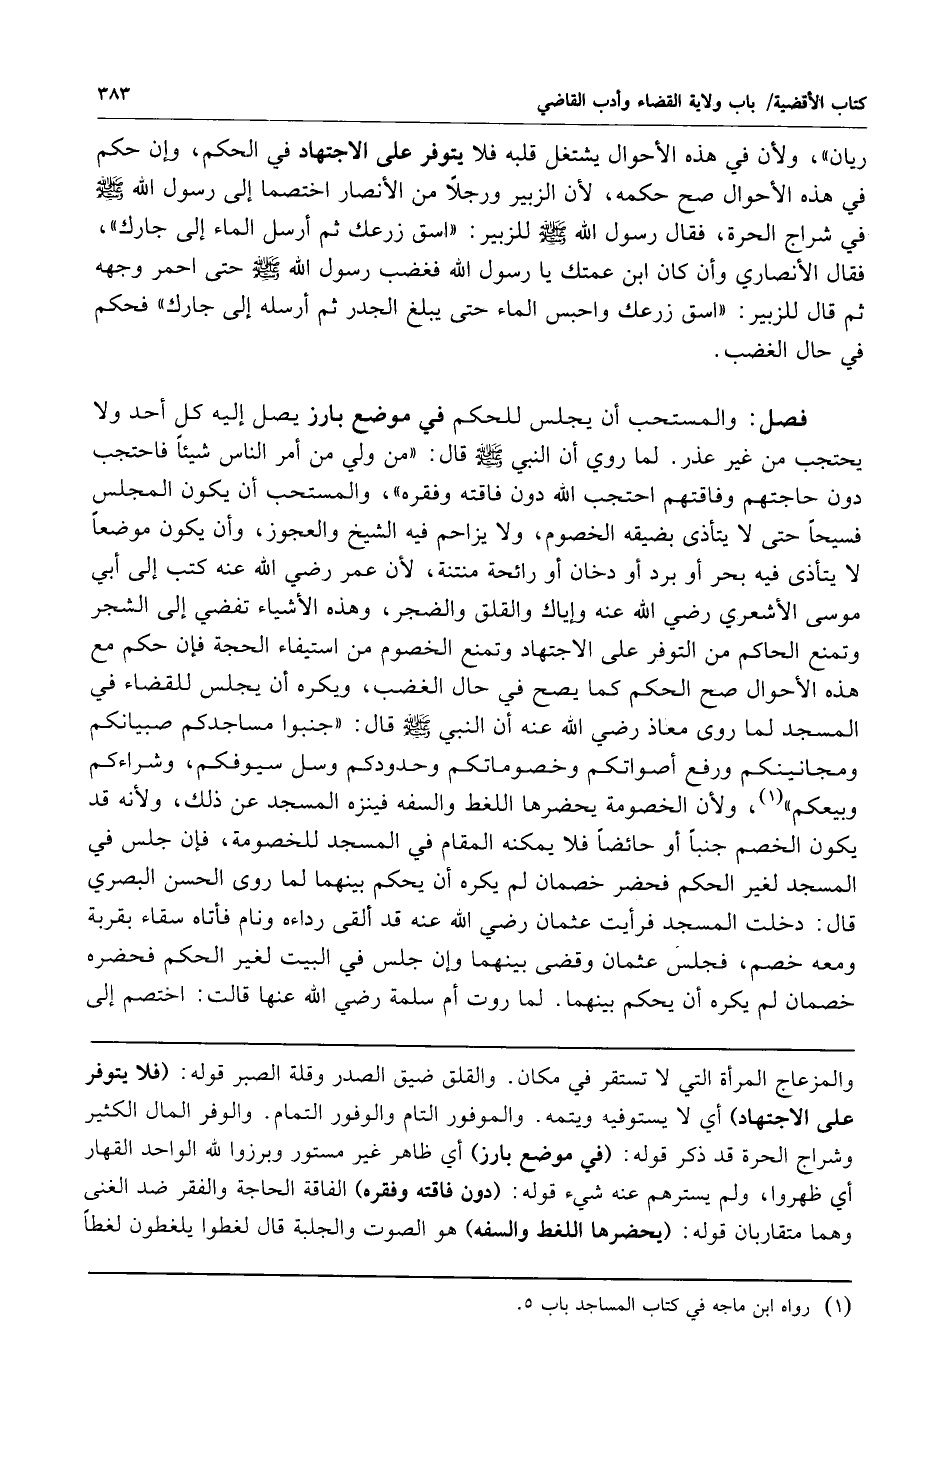 كتاب الأقضية/ باب ولاية القضاء وأدب القاضي ٣٨٣
ريان»، ولأن في هذه الأحوال يشتغل قلبه فلا يتوفر على الاجتهاد في الحكم، وإن حكم
في هذه الأحوال صح حكمه، لأن الزبير ورجلاً من الأنصار اختصما إلى رسول الله ﷺ
في شراج الحرة، فقال رسول الله ﷺ للزبير: «اسق زرعك ثم أرسل الماء إلى جارك»،
فقال الأنصاري وأن كان ابن عمتك يا رسول الله فغضب رسول الله ﷺ حتى احمر وجهه
ثم قال للزبير: «اسق زرعك واحبس الماء حتى يبلغ الجدر ثم أرسله إلى جارك» فحكم
في حال الغضب.
فصل: والمستحب أن يجلس للحكم في موضع بارز يصل إليه كل أحد ولا
يحتجب من غير عذر. لما روي أن النبي ﷺ قال: «من ولي من أمر الناس شيئاً فاحتجب
دون حاجتهم وفاقتهم احتجب الله دون فاقته وفقره»، والمستحب أن يكون المجلس
فسيحاً حتى لا يتأذى بضيقه الخصوم، ولا يزاحم فيه الشيخ والعجوز، وأن يكون موضعاً
لا يتأذى فيه بحر أو برد أو دخان أو رائحة منتنة، لأن عمر رضي الله عنه كتب إلى أبي
موسى الأشعري رضي الله عنه وإياك والقلق والضجر، وهذه الأشياء تفضي إلى الشجر
وتمنع الحاكم من التوفر على الاجتهاد وتمنع الخصوم من استيفاء الحجة فإن حكم مع
هذه الأحوال صح الحكم كما يصح في حال الغضب، ويكره أن يجلس للقضاء في
المسجد لما روى معاذ رضي الله عنه أن النبي ﷺ قال: «جنبوا مساجدكم صبيانكم
ومجانينكم ورفع أصواتكم وخصوماتكم وحدودكم وسل سيوفكم، وشراءكم
وبيعكم»(١)، ولأن الخصومة يحضرها اللغط والسفه فينزه المسجد عن ذلك، ولأنه قد
يكون الخصم جنباً أو حائضاً فلا يمكنه المقام في المسجد للخصومة، فإن جلس في
المسجد لغير الحكم فحضر خصمان لم يكره أن يحكم بينهما لما روى الحسن البصري
قال: دخلت المسجد فرأيت عثمان رضي الله عنه قد ألقى رداءه ونام فأتاه سقاء بقربة
ومعه خصم، فجلس عثمان وقضى بينهما وإن جلس في البيت لغير الحكم فحضره
خصمان لم يكره أن يحكم بينهما. لما روت أم سلمة رضي الله عنها قالت: اختصم إلى
والمزعاج المرأة التي لا تستقر في مكان. والقلق ضيق الصدر وقلة الصبر قوله: (فلا يتوفر
على الاجتهاد) أي لا يستوفيه ويتمه. والموفور التام والوفور التمام. والوفر المال الكثير
وشراج الحرة قد ذكر قوله: (في موضع بارز) أي ظاهر غير مستور وبرزوا لله الواحد القهار
أي ظهروا، ولم يسترهم عنه شيء قوله: (دون فاقته وفقره) الفاقة الحاجة والفقر ضد الغنى
وهما متقاربان قوله: (يحضرها اللغط والسفه) هو الصوت والجلبة قال لغطوا يلغطون لغطاً
(١) رواه ابن ماجه في كتاب المساجد باب ٥.